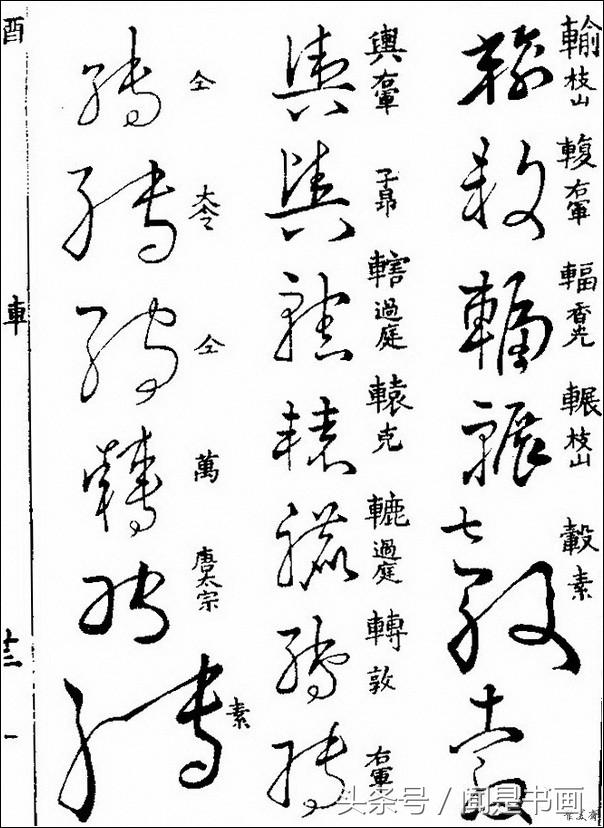 輸 枝山
輹 右軍
輻 香光
輾 枝山
轂 素
輿 右軍
子昂
轄 過庭
轅 克
轆 過庭
轉 敦
右軍
仝
大令
仝
萬
唐太宗
素
酉
車
头条号 / 闻是书画